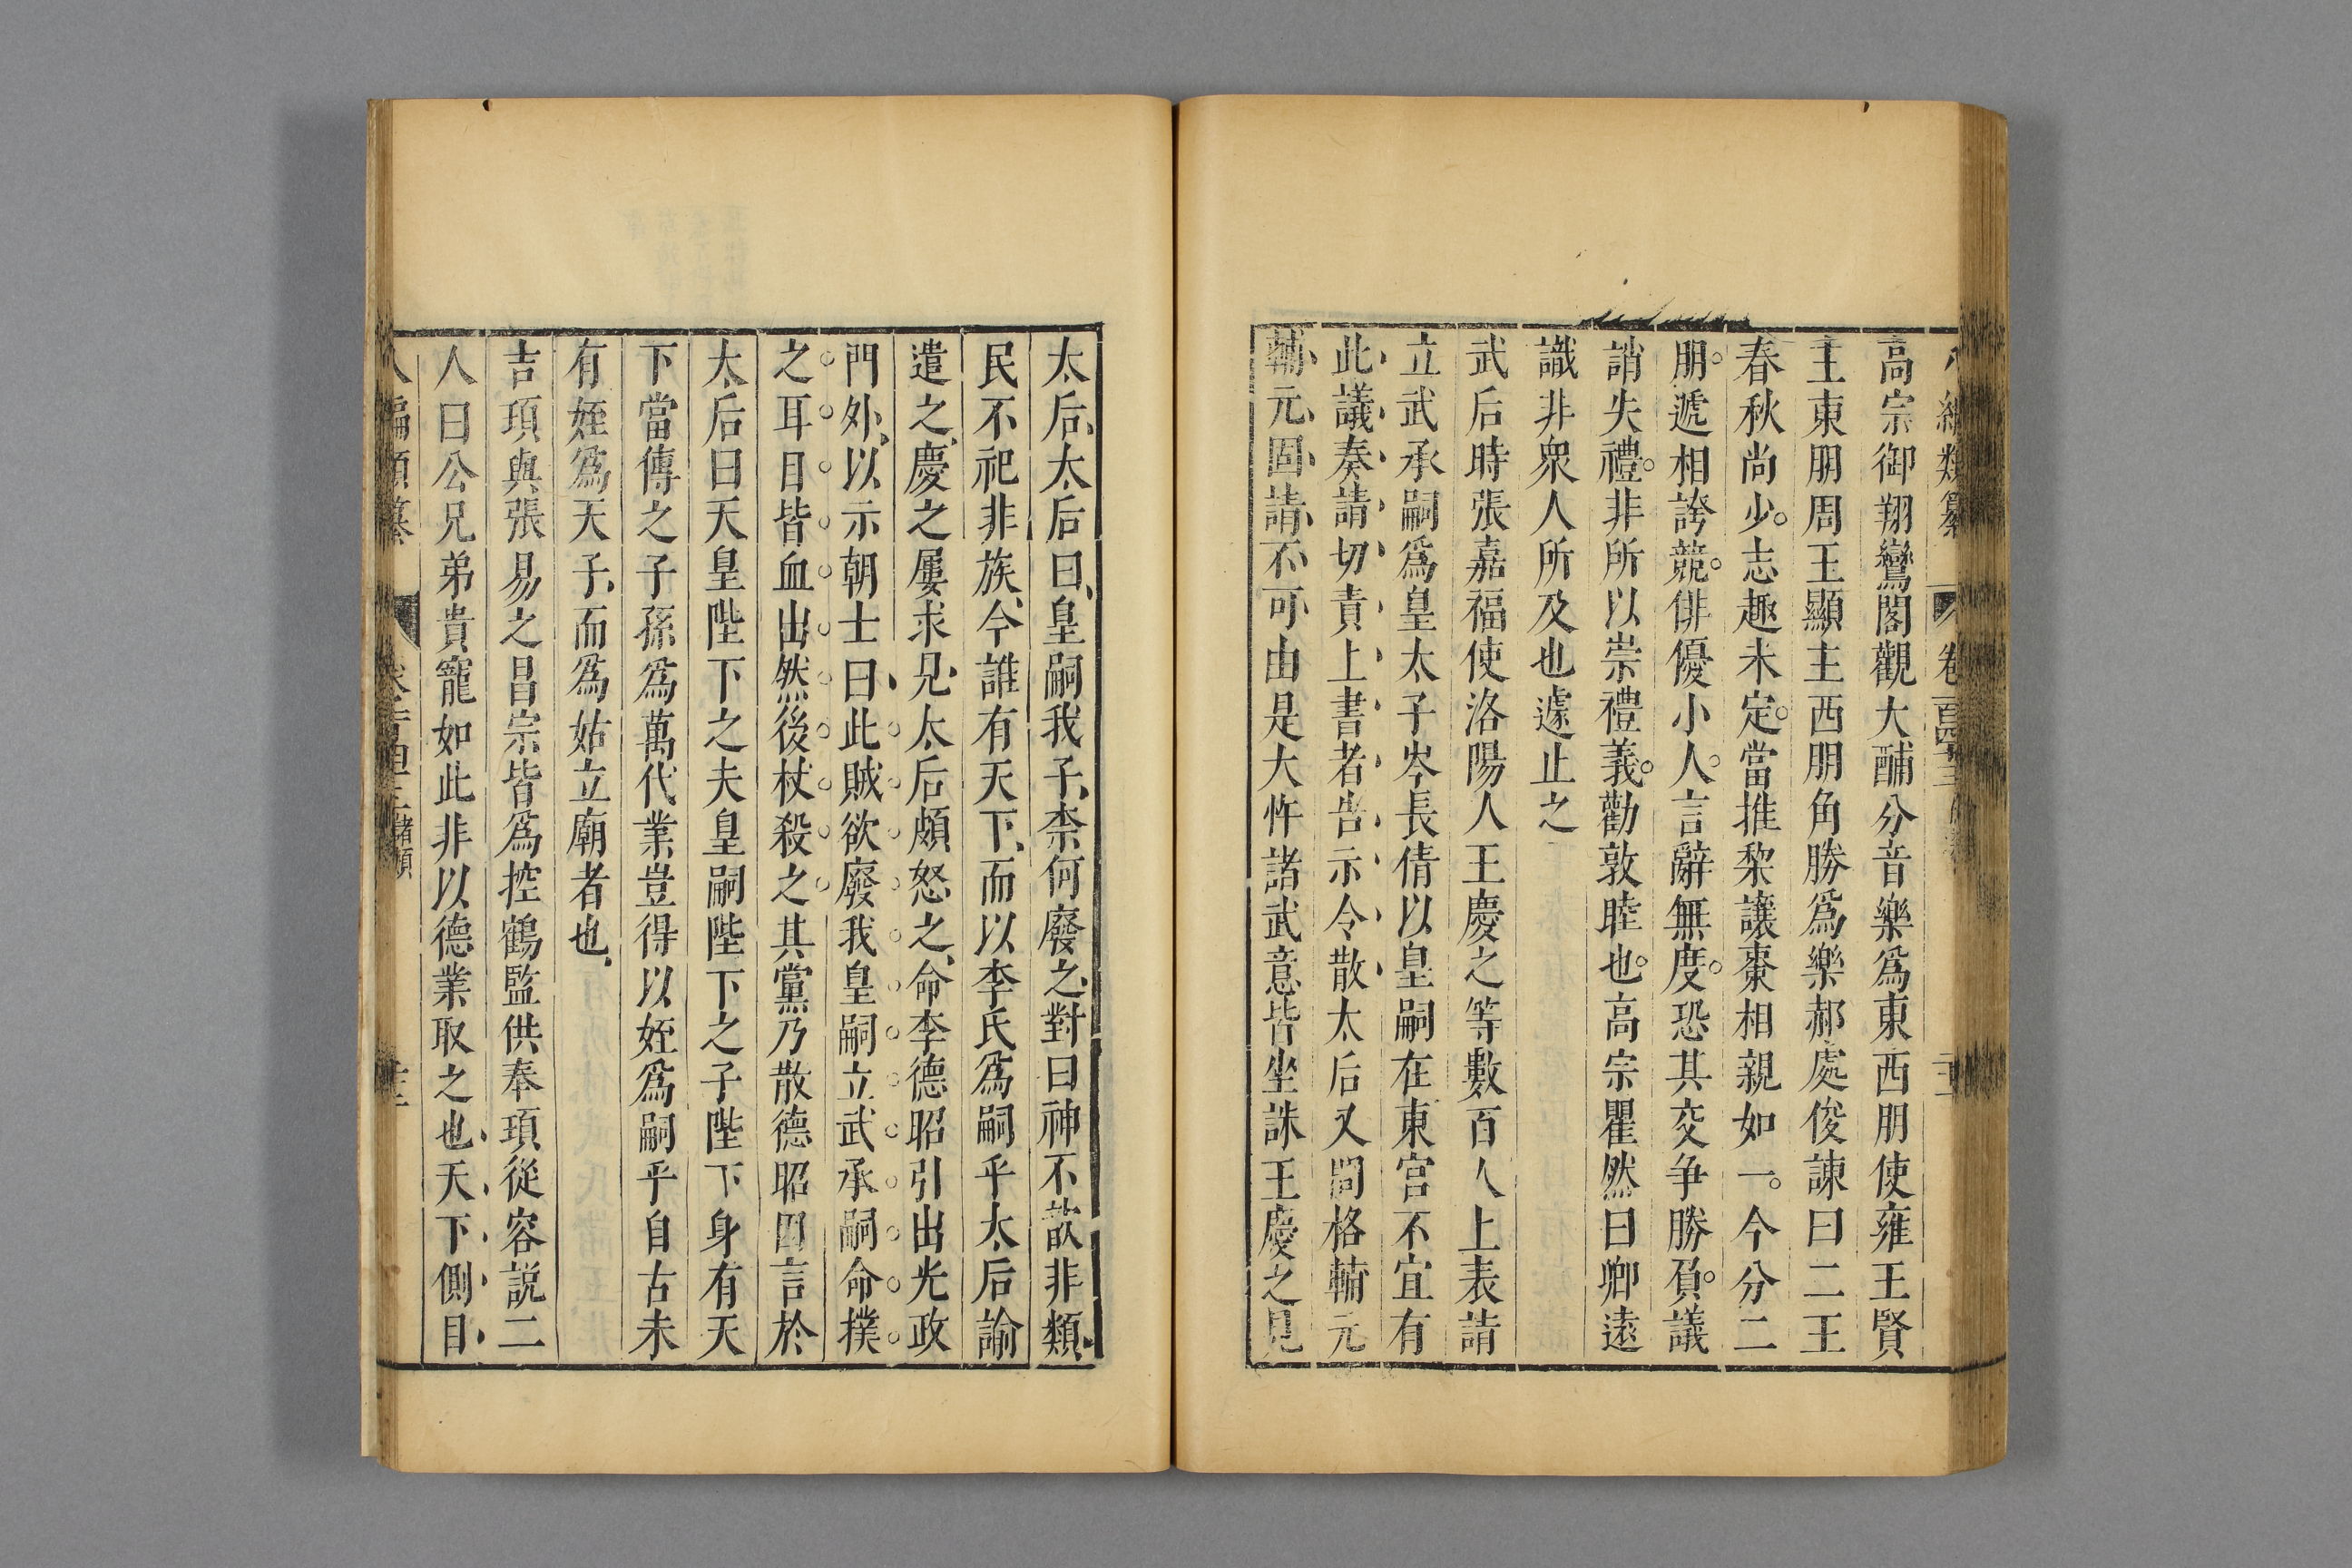 高宗御翔鸞閣觀大酺分音樂爲東西朋使雍王賢
主東朋周王顯主西朋角勝爲樂郝處俊諫曰二王
春秋尚少志趣未定當推棃讓棗相親如一今分二
朋遞相誇競俳優小人言辭無度恐其交争勝負議
誚失禮非所以崇禮義勸敦睦也高宗瞿然曰卿遠
識非衆人所及也遽止之
武后時張嘉福使洛陽人王慶之等數百人上表請
立武承嗣爲皇太子岑長倩以皇嗣在東宮不宜有
此議奏請切責上書者告示令散太后又問格輔元
輔元固請不可由是大忤諸武意皆坐誅王慶之見
太后太后曰皇嗣我子柰何廢之對曰神不歆非類
民不祀非族今誰有天下而以李氏爲嗣乎太后諭
遣之慶之屢求見太后頗怒之命李德昭引出光政
門外以示朝士曰此賊欲廢我皇嗣立武承嗣命撲
之耳目皆血出然後杖殺之其黨乃散德昭因言於
太后曰天皇陛下之夫皇嗣陛下之子陛下身有天
下當傳之子孫爲萬代業豈得以姪爲嗣乎自古未
有姪爲天子而爲姑立廟者也
吉頊與張易之昌宗皆爲控鶴監供奉頊從容説二
人曰公兄弟貴寵如此非以德業取之也天下側目